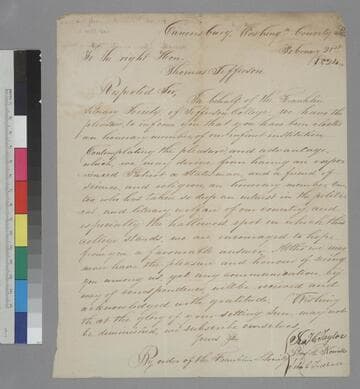 Canonsburg, Washing.n County
February 21st
1824
To the right Hon.
Thomas Jefferson
Respected Sir,
In behalf of the Franklin
Literary Society of Jefferson College, we have the
pleasure to inform you that you have been elected
an honorary member of our infant institution
Contemplating the pleasure and advantage
which we may derive from having an
Patriot a Statesman, and a friend of
science, and religion an honorary member, one
too who has taken so deep an interest in the polit
ical and literary welfare of our country, and
especially the hallowed spot on which this
college stands, we are encouraged to hope
from you a favourable answer.
may never have the pleasure and honour of seeing
you among us, yet any communication by
way of correspondence will be received and
acknowledged with gratitude. Wishing
that the glory of your setting sun may not
be diminished, we subscribe ourselves
yours &c
By order of the Franklin Society